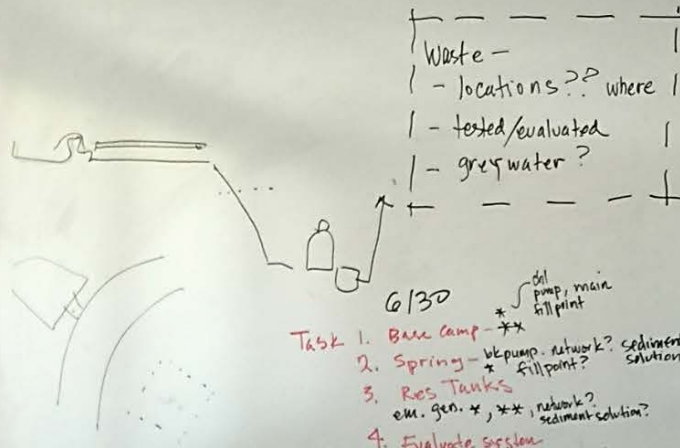 Waste -
- locations?? where
- tested/evaluated
- greywater?
6/30
chl
pump, main
* fillpoint
Task 1. Base camp - **
2. Spring - bkpump. network? sediment
* fillpoint? solution
3. Res Tanks
em. gen. *, **, network?
sediment solution?
4. Evaluate system